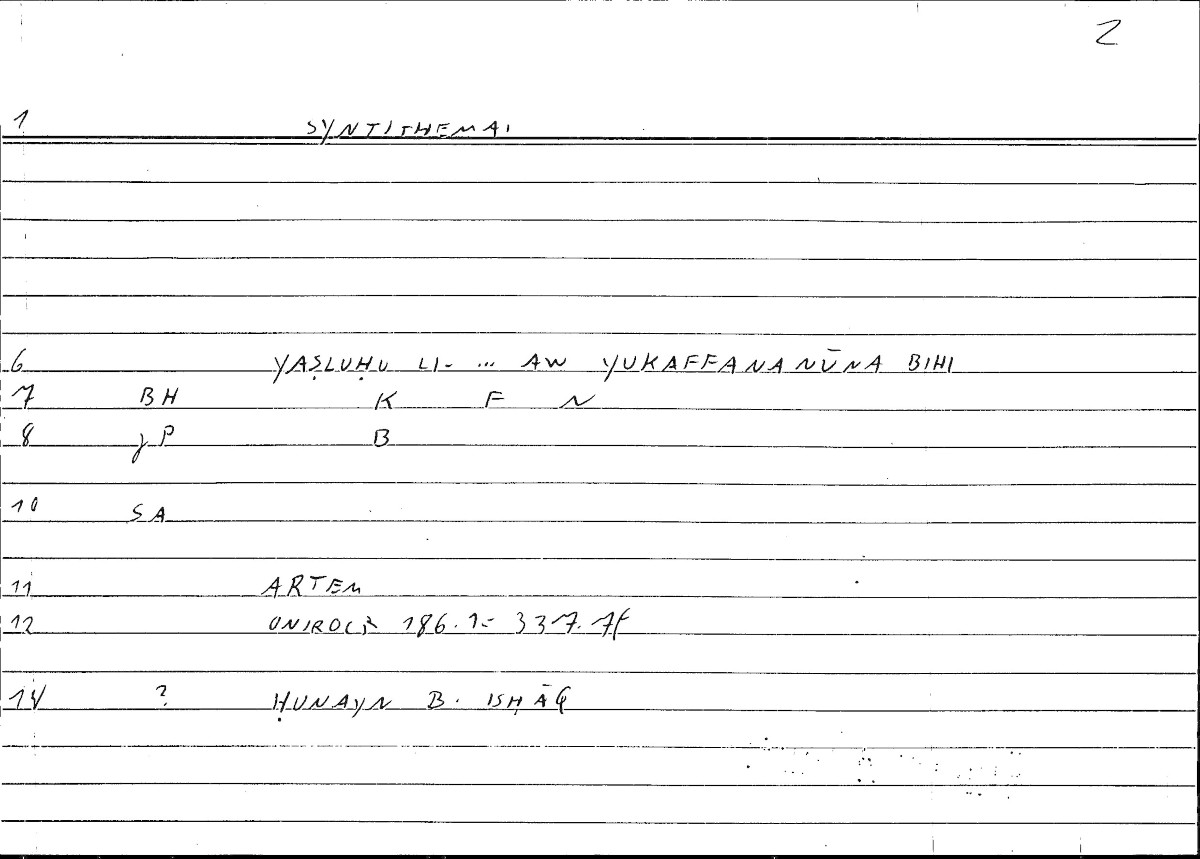 2
1 SYNTITHEMAI
6 YAṢLUḤU LI- ... AW YUKAFFANANŪNA BIHI
7 BH K F N
8 γP B
10 SA
11 ARTEM
12 ONIROCR 186.1= 337.7f
14 ? ḤUNAYN B. ISḤĀQ